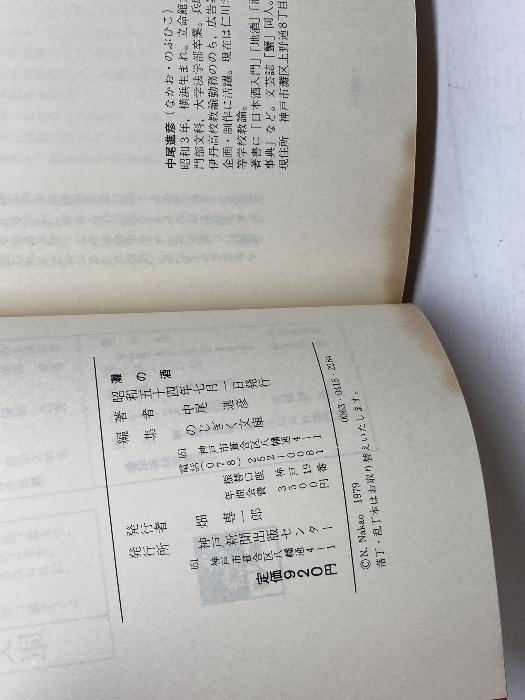 中尾進彦（なかお・のぶひこ）
昭和3年，横浜生まれ。立命館
門部文科，大学法学部卒業。兵
伊丹高校教諭勤務ののち，広告
企画・制作に活躍。現在は仁川
等学校教諭。
著書に「日本酒入門」「地酒」「酒
事典」など。文芸誌「蟹」同人。
現住所　神戸市灘区上野通8丁目
灘の酒
昭和五十四年七月一日発行
著者　中尾進彦
編集　のじぎく文庫
651　神戸市葺合区八幡通4-1
電話（078）251-0081
振替口座　神戸　19番
年間会費　3500円
発行者　畑専一郎
発行所　神戸新聞出版センター
651　神戸市葺合区八幡通4-1
定価920円
0063-0415-2264
©N. Nakao 1979
落丁・乱丁本はお取り替えいたします。